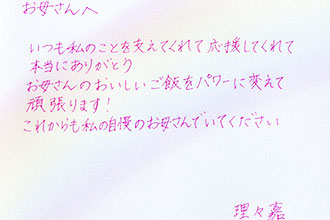 お母さんへ
いつも私のことを支えてくれて応援してくれて
本当にありがとう
お母さんのおいしいご飯をパワーに変えて
頑張ります！
これからも私の自慢のお母さんでいてください
理々嘉